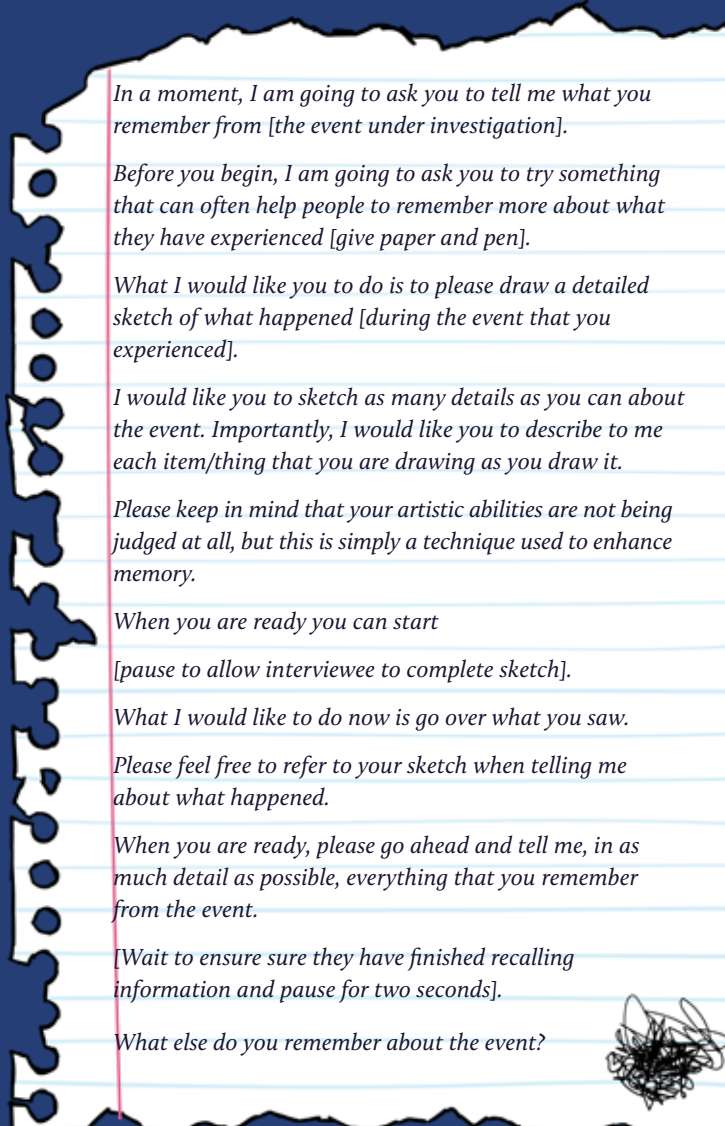 In a moment, I am going to ask you to tell me what you
remember from [the event under investigation].
Before you begin, I am going to ask you to try something
that can often help people to remember more about what
they have experienced [give paper and pen].
What I would like you to do is to please draw a detailed
sketch of what happened [during the event that you
experienced].
I would like you to sketch as many details as you can about
the event. Importantly, I would like you to describe to me
each item/thing that you are drawing as you draw it.
Please keep in mind that your artistic abilities are not being
judged at all, but this is simply a technique used to enhance
memory.
When you are ready you can start
[pause to allow interviewee to complete sketch].
What I would like to do now is go over what you saw.
Please feel free to refer to your sketch when telling me
about what happened.
When you are ready, please go ahead and tell me, in as
much detail as possible, everything that you remember
from the event.
[Wait to ensure sure they have finished recalling
information and pause for two seconds].
What else do you remember about the event?